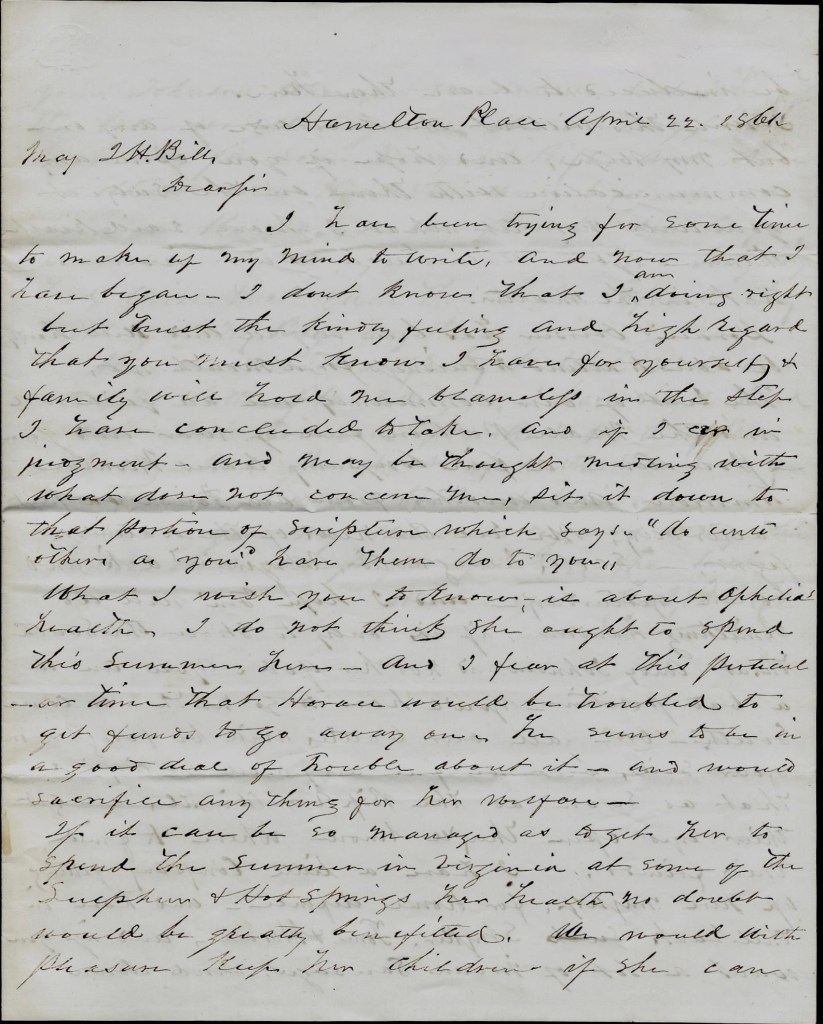 Hamelton Place April 22. 186
Maj J H. Bills
Dear sir
I have been trying for some time
to make up my mind to write, and now that I
have began - I dont know that I am doing right
but trust the kindly feeling and high regard
that you must know I have for yourself &
family will hold me blameless in the step
I have concluded to take. and if I err in
judgment - and may be thought medling with
what dose not concern me, set it down to
that portion of scripture which says "do unto
others as you'd have them do to you"
What I wish you to know - is about Ophelia's
health - I do not think she ought to spend
this summer here - And I fear at this perticul
-ar time that Horace would be troubled to
get funds to go away on - he seems to be in
a good deal of trouble about it - and would
sacrifice any thing for her welfare -
If it can be so managed as to get her to
spend the summer in Virginia at some of the
Sulphur & Hot Springs her health no doubt
would be greatly benefitted. We would with
pleasure keep her children - if she can